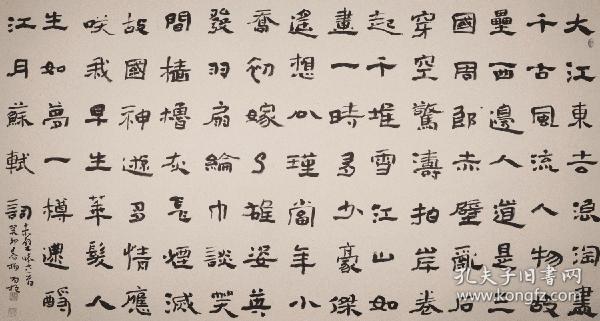 大江東去浪淘盡
千古風流人物故
壘西邊人道是三
國周郎赤壁亂石
穿空驚濤拍岸卷
起千堆雪江山如
畫一時多少豪傑
遙想公瑾當年小
喬初嫁了雄姿英
發羽扇綸巾談笑
間檣櫓灰飛煙滅
故國神遊多情應
咲我早生華髮人
生如夢一樽還酹
江月蘇軾詞
孔夫子旧书网
www.kongfz.com